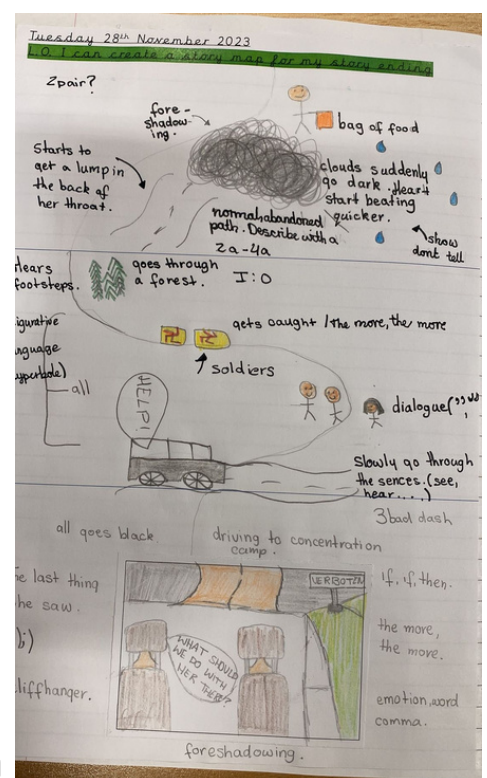 Tuesday 28th November 2023
L.O. I can create a story map for my story ending
2pair?
fore-
shadow-
ing.
bag of food
Starts to
get a lump in
the back of
her throat.
clouds suddenly
go dark. Heart
start beating
quicker.
normal, abandoned
path. Describe with a
2a-4a
show
dont tell
Hears
footsteps.
goes through
a forest.
I:O
gets caught / the more, the more
soldiers
all
HELP!
dialogue("
Slowly go through
the sences. (see,
hear....)
3 bad dash
all goes black
driving to concentration
camp.
last thing
she saw.
VERBOTEN
if, if, then.
WHAT SHOULD
WE DO WITH
HER THERE?
the more,
the more.
cliffhanger.
emotion, word
comma.
foreshadowing.